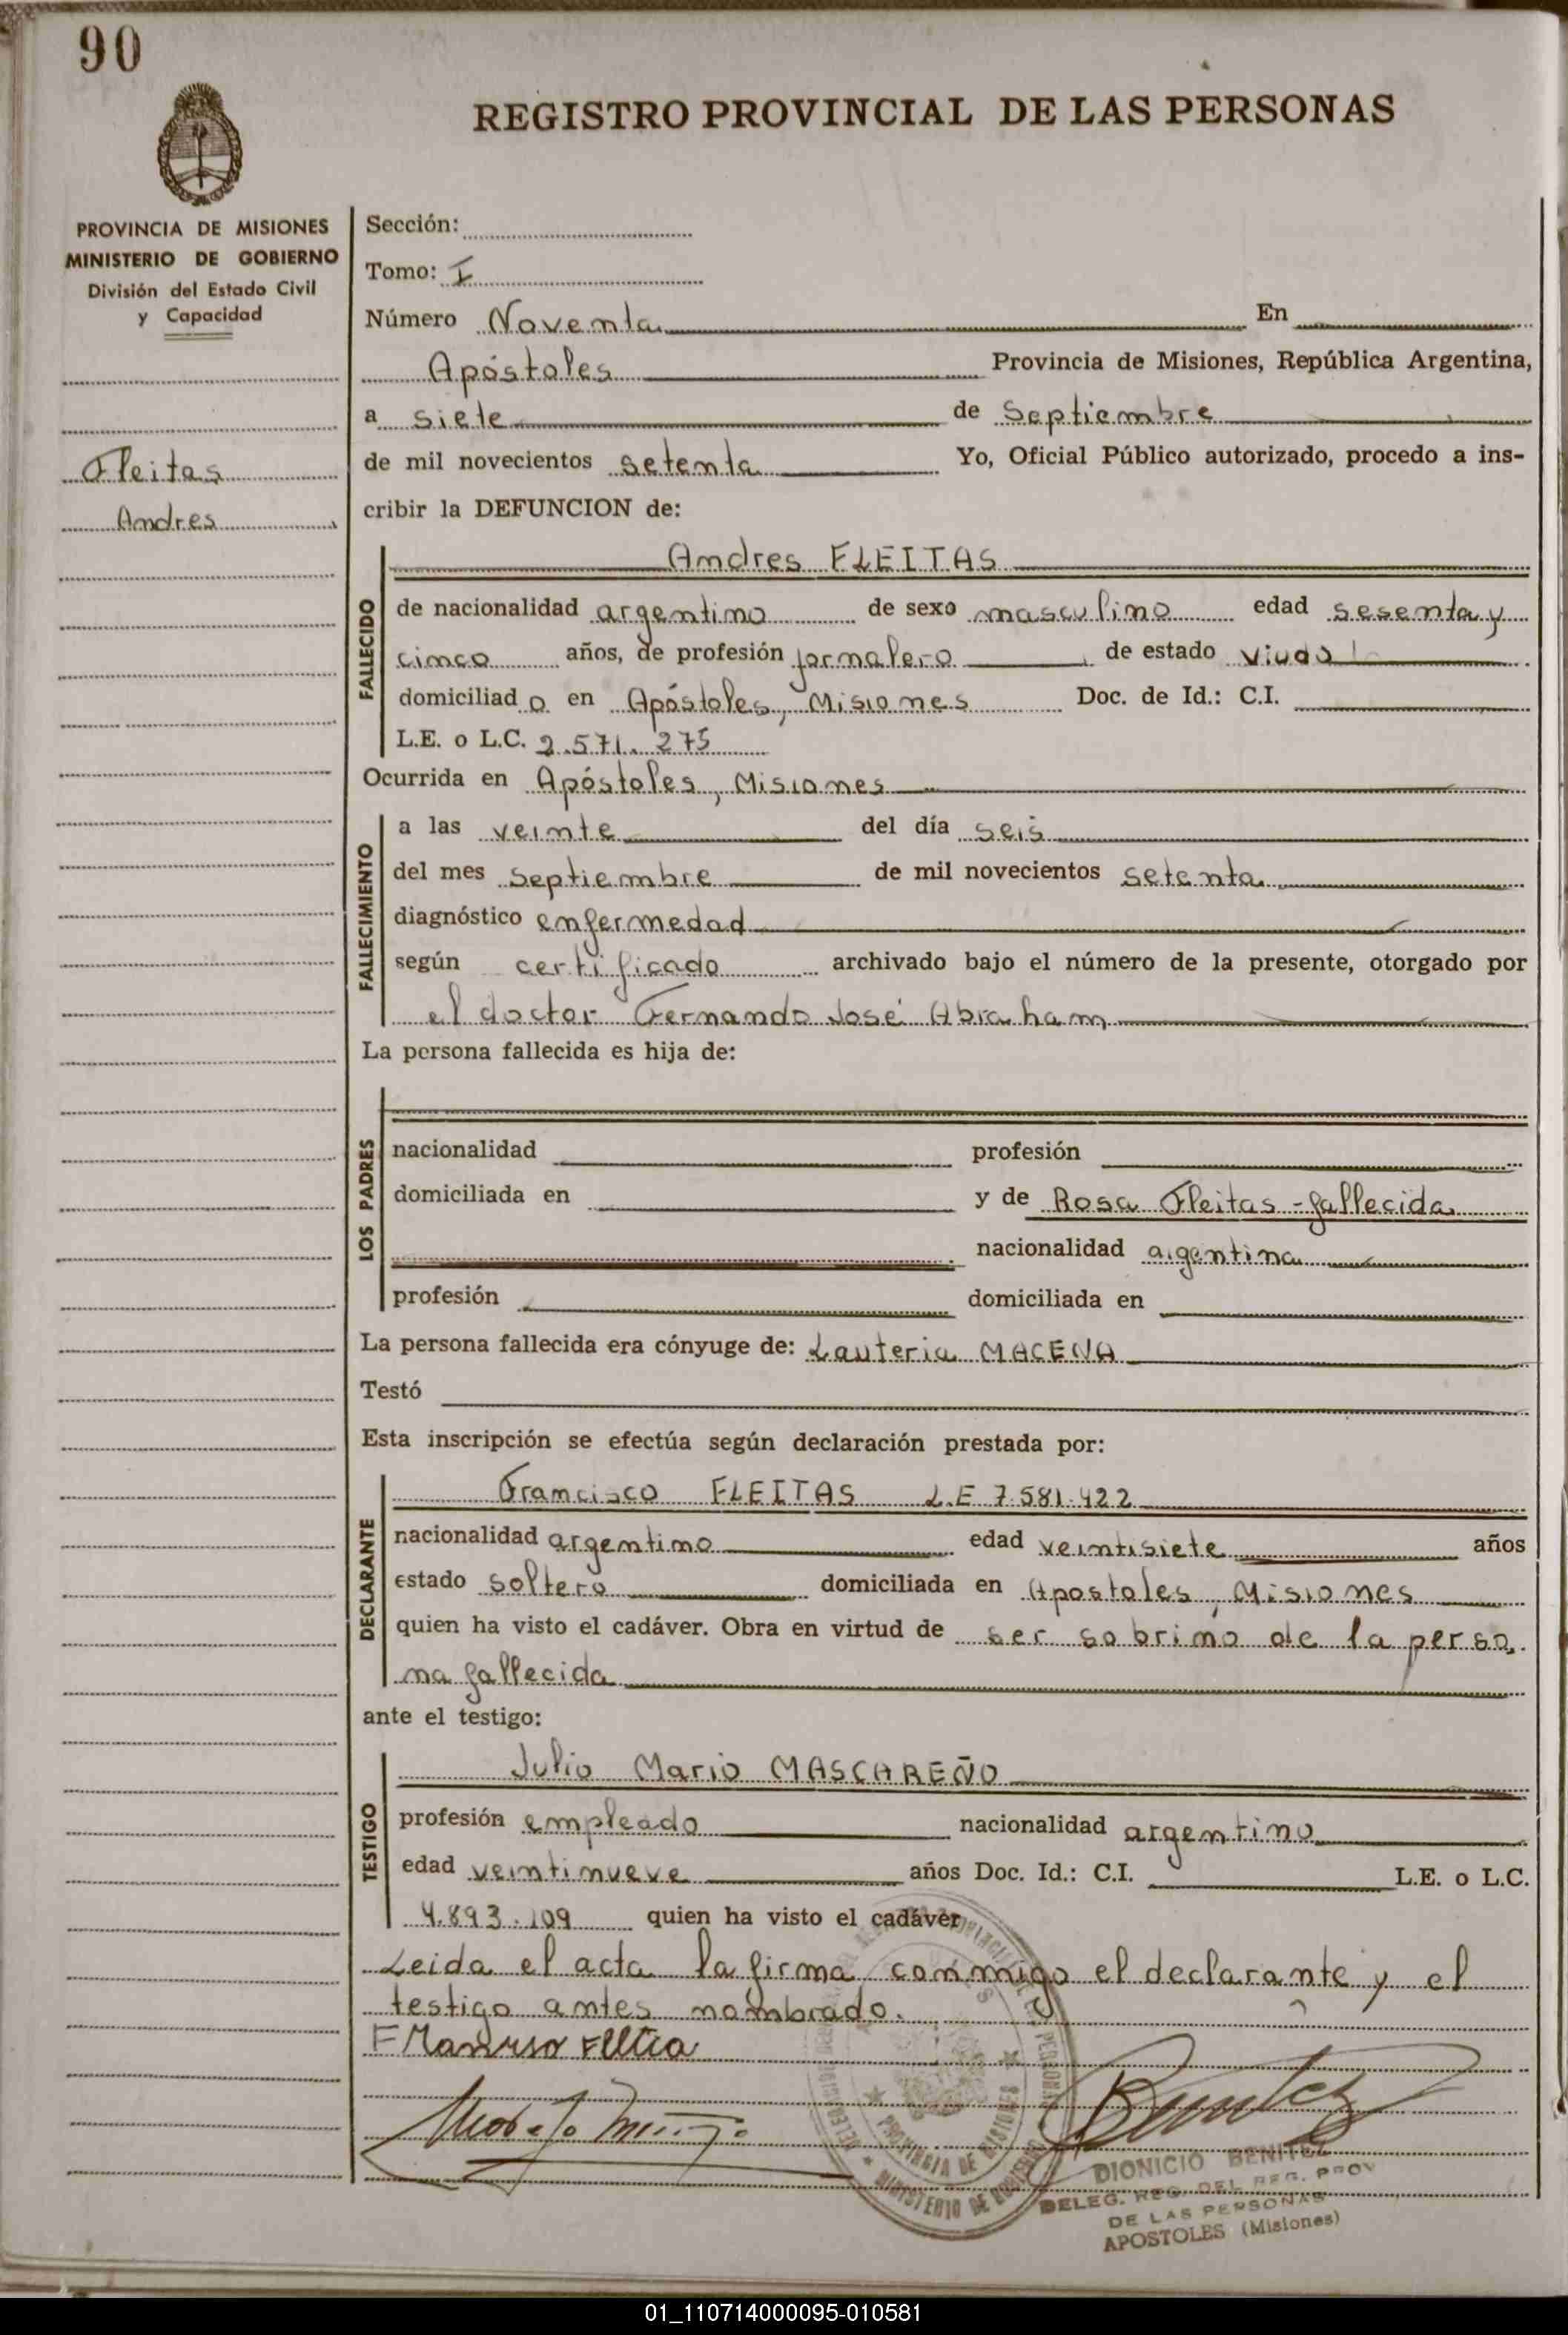 90
REGISTRO PROVINCIAL DE LAS PERSONAS
PROVINCIA DE MISIONES
MINISTERIO DE GOBIERNO
División del Estado Civil
y Capacidad
Fleitas
Andres
Sección:
Tomo: I
Número Noventa En
Apóstoles Provincia de Misiones, República Argentina,
a siete de Septiembre
de mil novecientos setenta Yo, Oficial Público autorizado, procedo a ins-
cribir la DEFUNCION de:
Andres FLEITAS
FALLECIDO
de nacionalidad argentino de sexo masculino edad sesenta y
cinco años, de profesión jornalero de estado viudo
domiciliad o en Apóstoles, Misiones Doc. de Id.: C.I.
L.E. o L.C. 2.571.275
Ocurrida en Apóstoles, Misiones
FALLECIMIENTO
a las veinte del día seis
del mes Septiembre de mil novecientos setenta
diagnóstico enfermedad
según certificado archivado bajo el número de la presente, otorgado por
el doctor Fernando José Abraham
La persona fallecida es hija de:
LOS PADRES
nacionalidad profesión
domiciliada en y de Rosa Fleitas - fallecida
nacionalidad argentina
profesión domiciliada en
La persona fallecida era cónyuge de: Lauteria MACENA
Testó
Esta inscripción se efectúa según declaración prestada por:
DECLARANTE
Francisco FLEITAS L.E 7.581.422
nacionalidad argentino edad veintisiete años
estado soltero domiciliada en Apostoles, Misiones
quien ha visto el cadáver. Obra en virtud de ser sobrino de la perso
na fallecida
ante el testigo:
TESTIGO
Julio Mario MASCAREÑO
profesión empleado nacionalidad argentino
edad veintinueve años Doc. Id.: C.I. L.E. o L.C.
4.893.109 quien ha visto el cadáver
Leida el acta la firma conmigo el declarante y el
testigo antes nombrado.
PROVINCIA DE MISIONES
MINISTERIO DE GOBIERNO
Benitez
DIONICIO BENITEZ
DELEG. REG. DEL REG. PROV
DE LAS PERSONAS
APOSTOLES (Misiones)
01_110714000095-010581